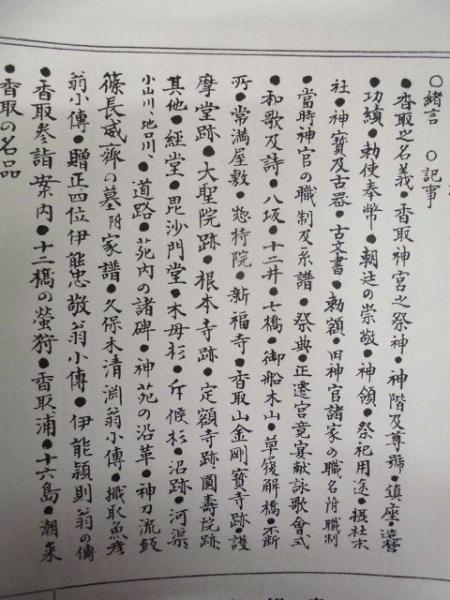 ○緒言 ○記事
●香取之名義●香取神宮之祭神●神階及尊號●鎮座●造營
●功績●勅使奉幣●朝廷の崇敬●神領●祭祀用途●摂社末
社●神寳及古器●古文書●勅額●旧神官諸家の職名附職制
●當時神官の職制及系譜●祭典●正遷宮竟宴献詠歌會式
●和歌及詩●八坂●十二井●七橋●御船木山●草履解橋●不断
所●常満屋敷●惣持院●新福寺●香取山金剛寳寺跡●護
摩堂跡●大聖院跡●根本寺跡●定額寺跡圓壽院跡
其他●経堂●毘沙門堂●木母杉●斥候杉●沼跡●河渠
小山川、地口川、●道路●苑内の諸碑●神苑の沿革●神刀流飯
篠長威齊の墓附家譜●久保木清淵翁小傳●楫取魚彦
翁小傳●贈正四位伊能忠敬翁小傳●伊能頴則翁の傳
●香取参詣案内●十二橋の螢狩●香取浦●十六島●潮来
●香取の名品